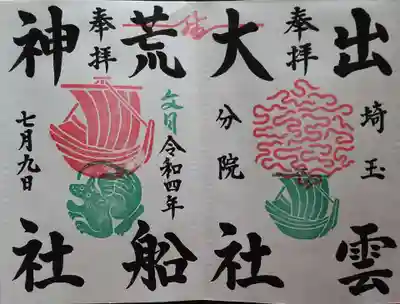 出雲
埼玉
奉拝
大社
分院
荒船
文月
令和四年
奉拝
神社
七月九日